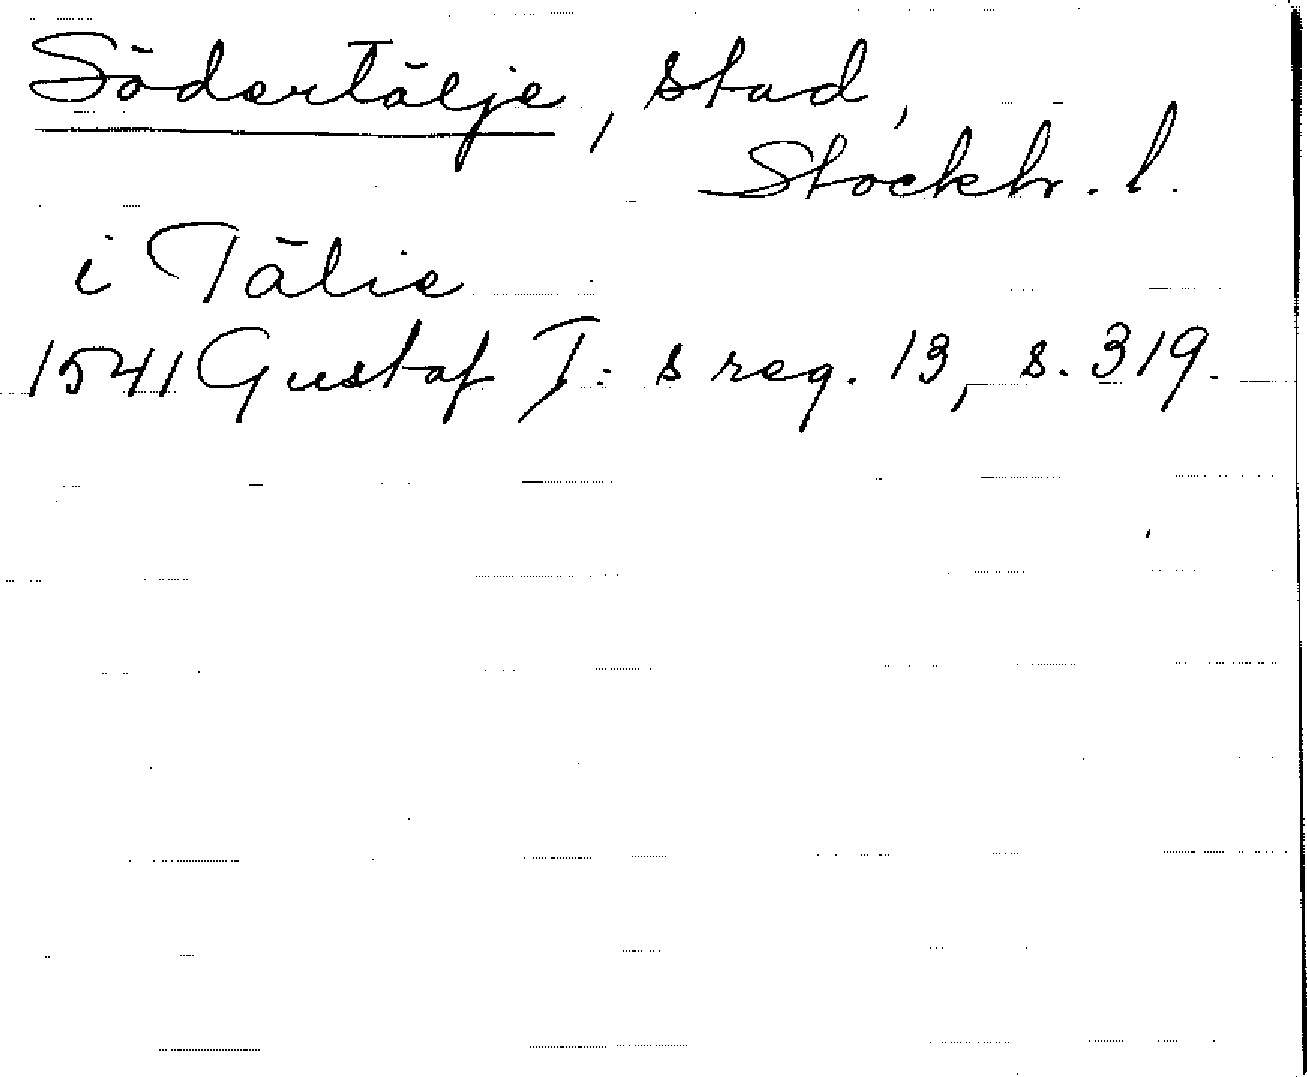 Södertälje, stad,
Stockh. l.
i Tälie
1541 Gustaf I:s reg. 13, s. 319.